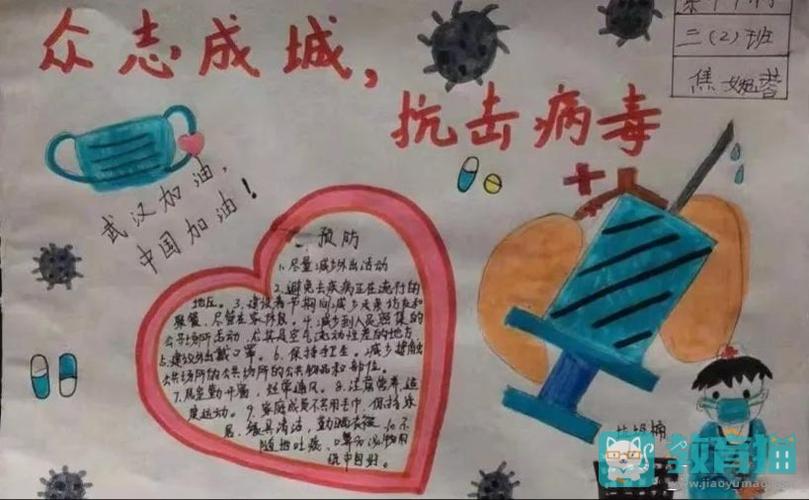 众志成城,
抗击病毒
二(2)班
焦
蓉
武汉加油,
中国加油!
一 预防
1.尽量减少外出活动
2.避免去疾病正在流行的
地区。3.建议春节期间减少走亲访友和
聚餐,尽量在家休息。4.减少到人员密集的
公共场所活动,尤其是空气流动性差的地方
5.建议外出戴口罩。6.保持手卫生。减少接触
公共场所的公共场所的公共物品和部位。
7.居室勤开窗,经常通风。8.注意营养,适
度运动。9.家庭成员不共用毛巾,保持家
居、餐具清洁,勤晒衣被。10.不
随地吐痰,口鼻分泌物用
纸巾包好。
教育猫
www.jiaoyumao.com